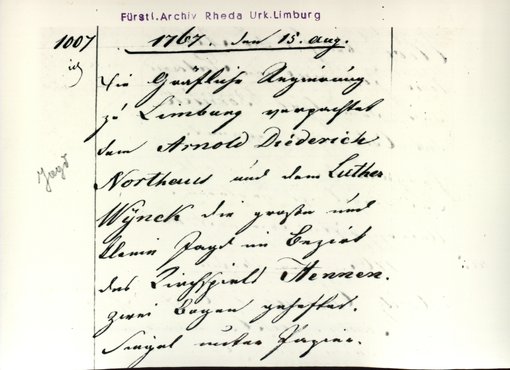 Fürstl.Archiv Rheda Urk.Limburg
1007 1767 den 15. Aug.
Die Gräfliche Regierung
zu Limburg verpachtet
Jagd
dem Arnold Diederich
Northaus und dem Luther
Wÿnck die große und
kleine Jagd im Bezirk
des Kirchspiels Hennen.
zwei Bogen geheftet.
Siegel unter Papier.